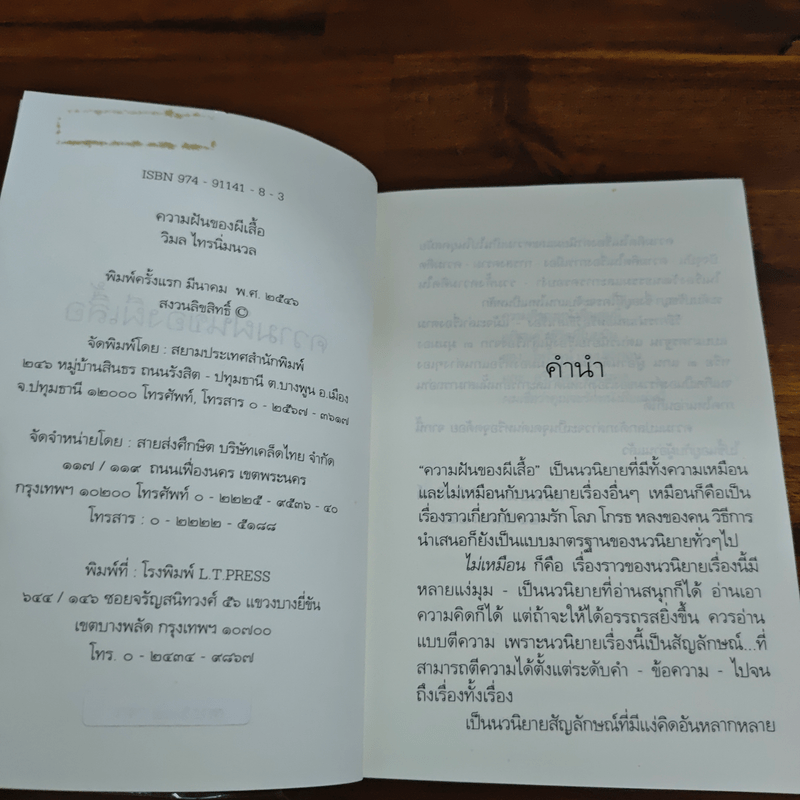 ISBN 974 - 91141 - 8 - 3
ความฝันของผีเสื้อ
วิมล ไทรนิ่มนวล
พิมพ์ครั้งแรก มีนาคม พ.ศ. ๒๕๔๖
สงวนลิขสิทธิ์ ©
จัดพิมพ์โดย : สยามประเทศสำนักพิมพ์
๒๔๖ หมู่บ้านสินธร ถนนรังสิต - ปทุมธานี ต.บางพูน อ.เมือง
จ.ปทุมธานี ๑๒๐๐๐ โทรศัพท์, โทรสาร ๐ - ๒๕๖๗ - ๓๖๑๗
จัดจำหน่ายโดย : สายส่งศึกษิต บริษัทเคล็ดไทย จำกัด
๑๑๗ / ๑๑๙ ถนนเฟื่องนคร เขตพระนคร
กรุงเทพฯ ๑๐๒๐๐ โทรศัพท์ ๐ - ๒๒๒๕ - ๙๕๓๖ - ๔๐
โทรสาร : ๐ - ๒๒๒๒ - ๕๑๘๘
พิมพ์ที่ : โรงพิมพ์ L.T.PRESS
๖๔๔ / ๑๔๖ ซอยจรัญสนิทวงศ์ ๕๖ แขวงบางยี่ขัน
เขตบางพลัด กรุงเทพฯ ๑๐๗๐๐
โทร. ๐ - ๒๔๓๔ - ๙๘๖๗
คำนำ
“ความฝันของผีเสื้อ” เป็นนวนิยายที่มีทั้งความเหมือน
และไม่เหมือนกับนวนิยายเรื่องอื่นๆ เหมือนก็คือเป็น
เรื่องราวเกี่ยวกับความรัก โลภ โกรธ หลงของคน วิธีการ
นำเสนอก็ยังเป็นแบบมาตรฐานของนวนิยายทั่วๆไป
ไม่เหมือน ก็คือ เรื่องราวของนวนิยายเรื่องนี้มี
หลายแง่มุม - เป็นนวนิยายที่อ่านสนุกก็ได้ อ่านเอา
ความคิดก็ได้ แต่ถ้าจะให้ได้อรรถรสยิ่งขึ้น ควรอ่าน
แบบตีความ เพราะนวนิยายเรื่องนี้เป็นสัญลักษณ์...ที่
สามารถตีความได้ตั้งแต่ระดับคำ - ข้อความ - ไปจน
ถึงเรื่องทั้งเรื่อง
เป็นนวนิยายสัญลักษณ์ที่มีแง่คิดอันหลากหลาย